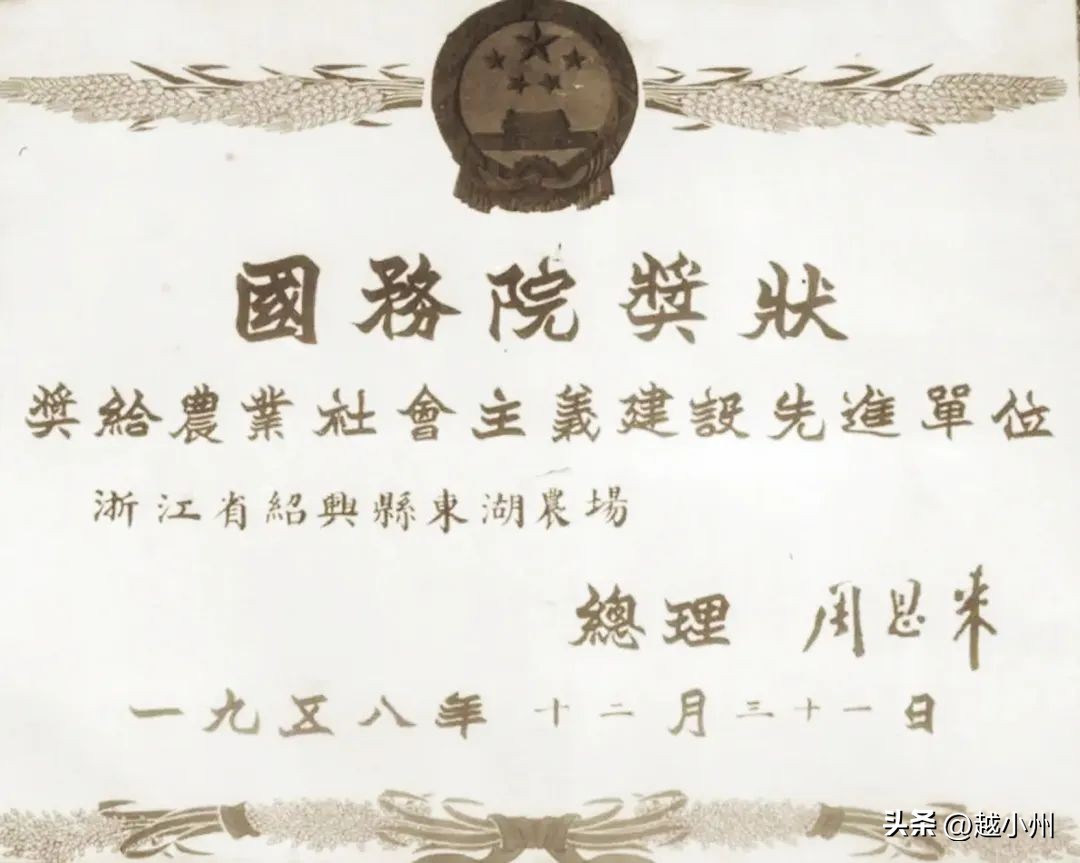 國務院獎狀
獎給農業社會主義建設先進單位
浙江省紹興縣東湖農場
總理 周恩来
一九五八年十二月三十一日
头条 @越小州